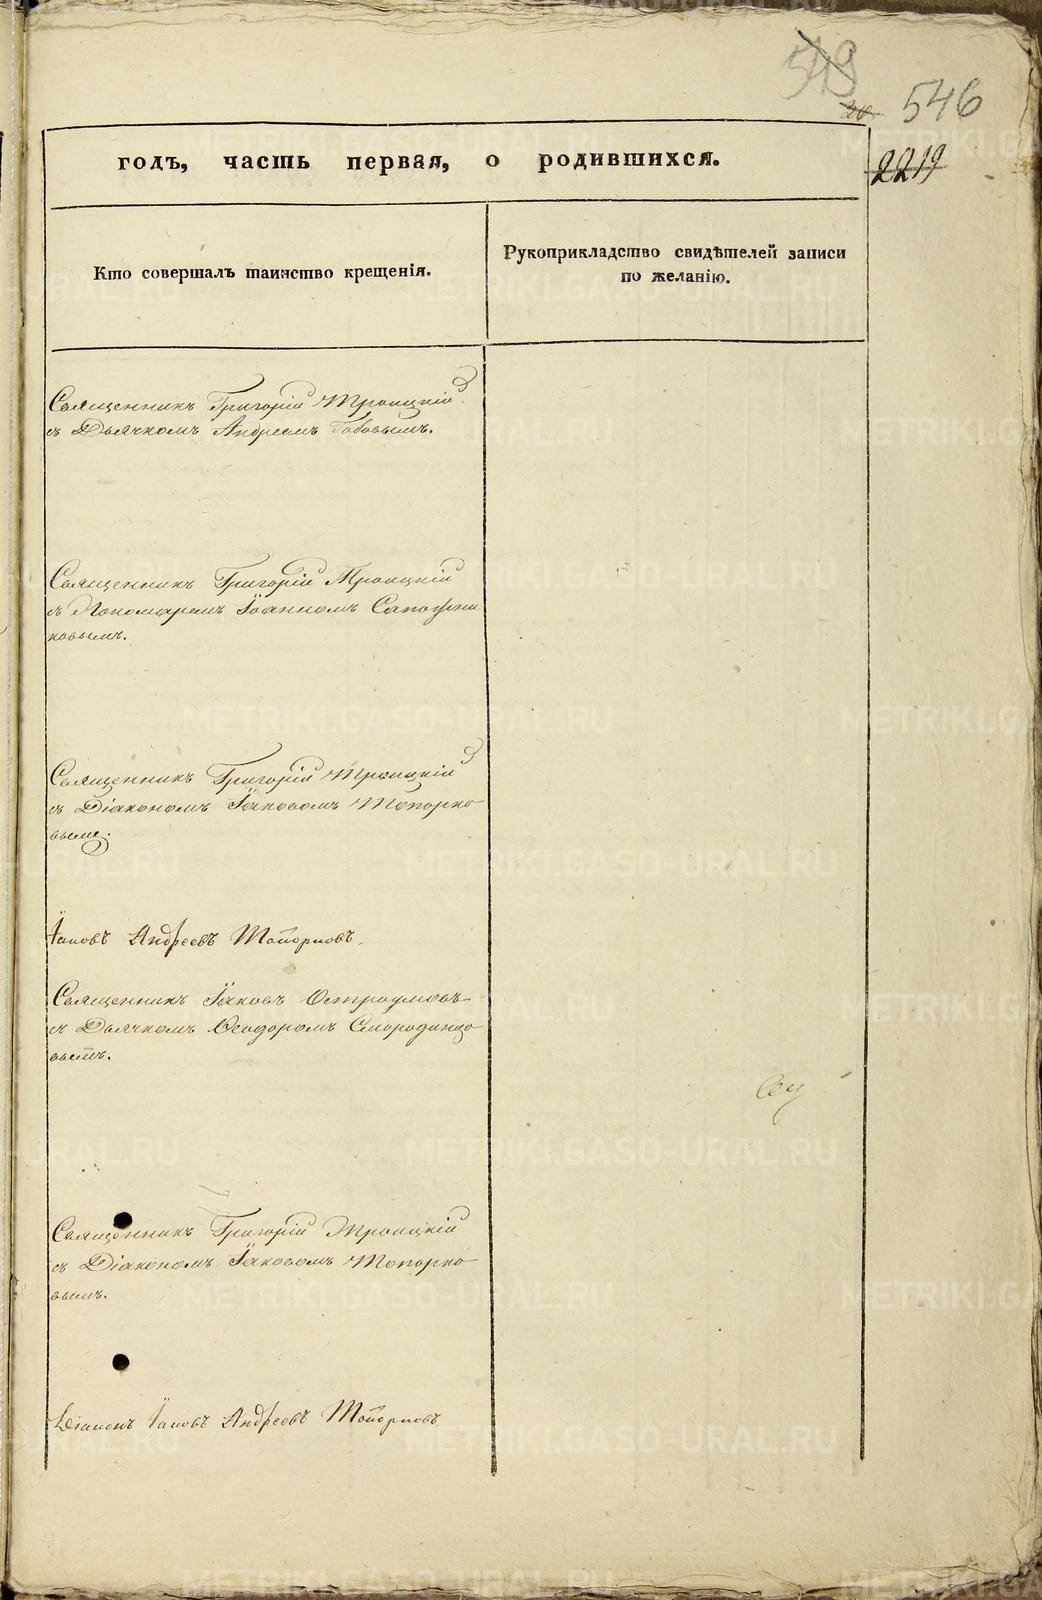 549
20.
546
2219
годъ, часть первая, о родившихся.
Кто совершалъ таинство крещенія.
Рукоприкладство свидѣтелей записи
по желанію.
Священникъ Григорій Троицкій
съ Дьячкомъ Андреемъ Бабовымъ.
Священникъ Григорій Троицкій
съ Пономаремъ Іоанномъ Сапожни
ковымъ.
Священникъ Григорій Троицкій
съ Діакономъ Іаковомъ Топорко
вымъ.
Іаковъ Андреевъ Топорковъ.
Священникъ Іаковъ Остроумовъ
съ Дьячкомъ Ѳеодоромъ Смородинцо
вымъ.
Священникъ Григорій Троицкій
съ Діакономъ Іаковомъ Топорко
вымъ.
Діаконъ Іаковъ Андреевъ Топорковъ
METRIKI.GASO-URAL.RU